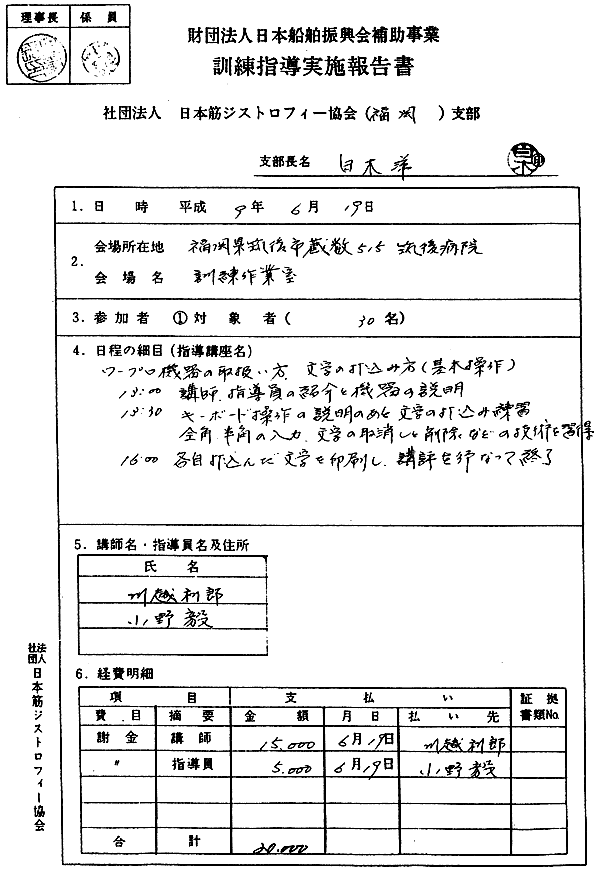 理事長 係員
財団法人日本船舶振興会補助事業
訓練指導実施報告書
社団法人 日本筋ジストロフィー協会(福岡 )支部
支部長名 白木洋
1. 日 時 平成 9年 6月 19日
2. 会場所在地 福岡県筑後市蔵数515 筑後病院
会場名 訓練作業室
3. 参加者 ①対象者( 30名)
4. 日程の細目(指導講座名)
ワープロ機器の取扱い方、文字の打込み方(基本操作)
13:00 講師、指導員の紹介と機器の説明
13:30 キーボード操作の説明のあと文字の打込み練習
全角、半角の入力、文字の取消しと削除などの技術を習得
16:00 各自打込んだ文字を印刷し、講評を行なって終了
5. 講師名・指導員名及住所
氏名
川越利郎
小野毅
6. 経費明細
項目 支払い 証拠書類No.
費目 摘要 金額 月日 払い先
謝金 講師 15.000 6月19日 川越利郎
〃 指導員 5.000 6月19日 小野毅
合計 20.000
社団法人 日本筋ジストロフィー協会